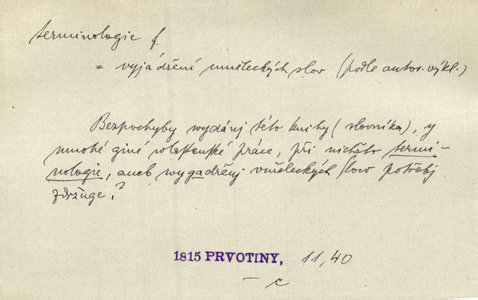 terminologie f.
= vyjádření uměleckých slov (podle autor. výkl.)
Bezpochyby wydánj této knihy (slovníka), y
mnohé giné wlastenské práce, při nichžto termi-
nologie, aneb wygadřenj uměleckých slow potřebj
zdržuge?
1815 PRVOTINY, 11, 40
– c